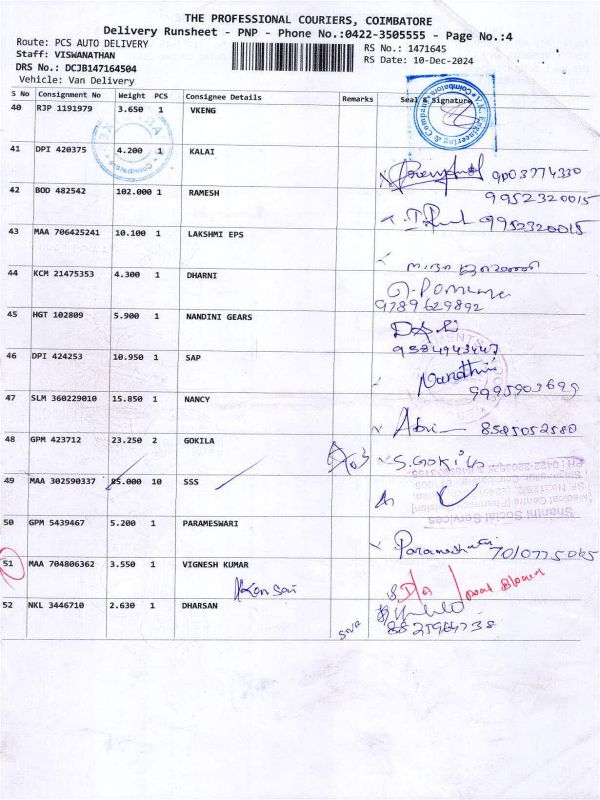 THE PROFESSIONAL COURIERS, COIMBATORE
Delivery Runsheet - PNP - Phone No.:0422-3505555 - Page No.:4
Route: PCS AUTO DELIVERY
RS No.: 1471645
Staff: VISWANATHAN
RS Date: 10-Dec-2024
DRS No.: DCJB147164504
Vehicle: Van Delivery
S No Consignment No Weight PCS Consignee Details Remarks Seal & Signature
40 RJP 1191979 3.650 1 VKENG
V.K. Engineering & Company Coimbatore
41 DPI 420375 4.200 1 KALAI
9003774330
42 BOD 482542 102.000 1 RAMESH
9952320015
9952320015
43 MAA 706425241 10.100 1 LAKSHMI EPS
44 KCM 21475353 4.300 1 DHARNI
9789629892
45 HGT 102809 5.900 1 NANDINI GEARS
9384943447
46 DPI 424253 10.950 1 SAP
Nandhini
9995903699
47 SLM 360229010 15.850 1 NANCY
8585052580
48 GPM 423712 23.250 2 GOKILA
S.GOKila
49 MAA 302590337 85.000 10 SSS
Shanthi Social Services
50 GPM 5439467 5.200 1 PARAMESWARI
Parameshwari
7010775065
51 MAA 704806362 3.550 1 VIGNESH KUMAR
52 NKL 3446710 2.630 1 DHARSAN